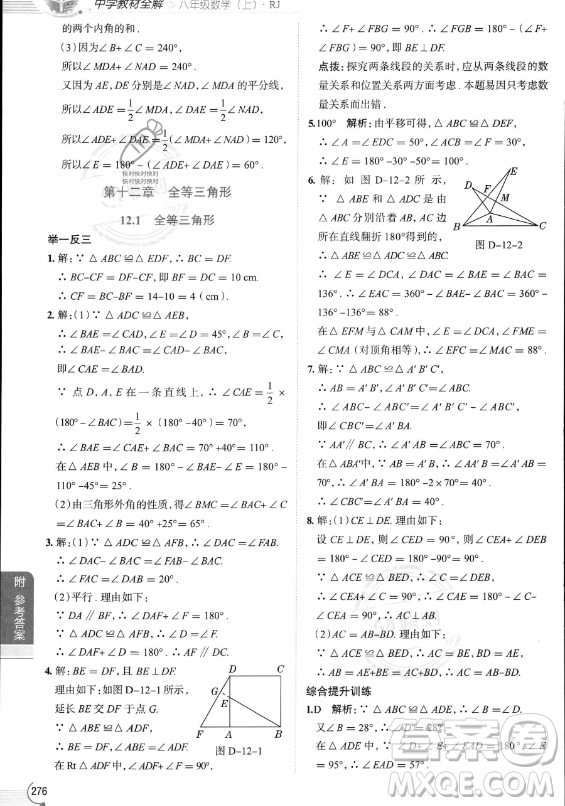 中学教材全解 八年级数学(上)·RJ
的两个内角的和.
(3)因为∠B+∠C=240°,
所以∠MDA+∠DAN=240°.
又因为AE,DE分别是∠NAD,∠MDA的平分线,
所以∠ADE=1/2∠MDA,∠DAE=1/2∠NAD.
所以∠ADE+∠DAE=1/2(∠MDA+∠NAD)=120°,
所以∠E=180°-(∠ADE+∠DAE)=60°.
第十二章 全等三角形
12.1 全等三角形
举一反三
1.解:∵△ABC≌△EDF,∴BC=DF.
∴BC-CF=DF-CF,即BF=DC=10 cm.
∴CF=BC-BF=14-10=4(cm).
2.解:(1)∵△ADC≌△AEB,
∴∠BAE=∠CAD,∠E=∠D=45°,∠B=∠C,
∴∠BAE-∠BAC=∠CAD-∠BAC,
即∠CAE=∠BAD.
∵点D,A,E在一条直线上,∴∠CAE=1/2×
(180°-∠BAC)=1/2×(180°-40°)=70°,
∴∠BAE=∠BAC+∠CAE=40°+70°=110°.
在△AEB中,∠B=180°-∠BAE-∠E=180°-
110°-45°=25°.
(2)由三角形外角的性质,得∠BMC=∠BAC+∠C=
∠BAC+∠B=40°+25°=65°.
3.解:(1)∵△ADC≌△AFB,∴∠DAC=∠FAB.
∴∠DAC-∠BAC=∠FAB-∠BAC,
∴∠FAC=∠DAB=20°.
(2)平行.理由如下:
∵DA∥BF,∴∠DAF+∠F=180°.
∵△ADC≌△AFB,∴∠ADF=∠F,
∴∠DAF+∠ADF=180°,∴AF∥DC.
4.解:BE=DF,且BE⊥DF.
理由如下:如图D-12-1所示,
延长BE交DF于点G.
∵△ABE≌△ADF,
∴BE=DF,∠FBG=∠ADF.
在Rt△ADF中,∠ADF+∠F=90°,
D C G E F A B
图D-12-1
附 参考答案
276
∴∠F+∠FBG=90°,∴∠FGB=180°-(∠F+
∠FBG)=90°,∴BE⊥DF.
点拨:探究两条线段的关系时,应从两条线段的数
量关系和位置关系两方面考虑.本题易因只考虑数
量关系而出错.
5.100° 解析:由平移可得,△ABC≌△DEF,
∴∠A=∠EDC=50°,∠ACB=∠F=30°,
∴∠ABC=180°-30°-50°=100°.
6.解:如图D-12-2所示,
∵△ABE和△ADC是△ABC
分别沿着AB,AC边
翻折180°得到的,
∴△ABE≌△ADC≌△ABC,
D E F M A B C
图D-12-2
∴∠E=∠DCA=∠ACB,∠BAE=∠DAC=∠BAC=
136°.∴∠CAE=360°-∠BAE-∠BAC=360°-
136°-136°=88°.
在△EFM与△CAM中,∠E=∠DCA,∠FME=
∠CMA(对顶角相等),∴∠EFC=∠MAC=88°.
7.解:∵△ABC≌△A'B'C',
∴AB=A'B',∠A'B'C'=∠ABC,
∴∠ABC-∠ABC'=∠A'B'C'-∠ABC',
即∠CBC'=∠A'BA.
∵AA'∥BC,∴∠A'AB=∠ABC=70°.
在△ABA'中,∵AB=A'B',∴∠AA'B=∠A'AB=
70°,∴∠A'BA=180°-2×70°=40°,
∴∠CBC'=∠A'BA=40°.
8.解:(1)CE⊥DE.理由如下:
设CE⊥DE,则∠CED=90°,∴∠CEA+∠DEB=
180°-∠CED=180°-90°=90°.
∵△ACE≌△BED,∴∠C=∠DEB,
∴∠CEA+∠C=90°,∴∠A=180°-(∠CEA+
∠C)=90°,∴AC⊥AB.
(2)AC=AB-BD.理由如下:
∵△ACE≌△BED,∴AC=BE,AE=BD.
∴AB=AE+BE=BD+AC,∴AC=AB-BD.
综合提升训练
1.D 解析:∵△ABC≌△ADE,∴∠B=∠D.
又∠B=28°,∴∠D=28°.
又∠E=95°,∠EAD+∠D+∠E=180°,∠EAB=
20°,∴∠EAD=57°.